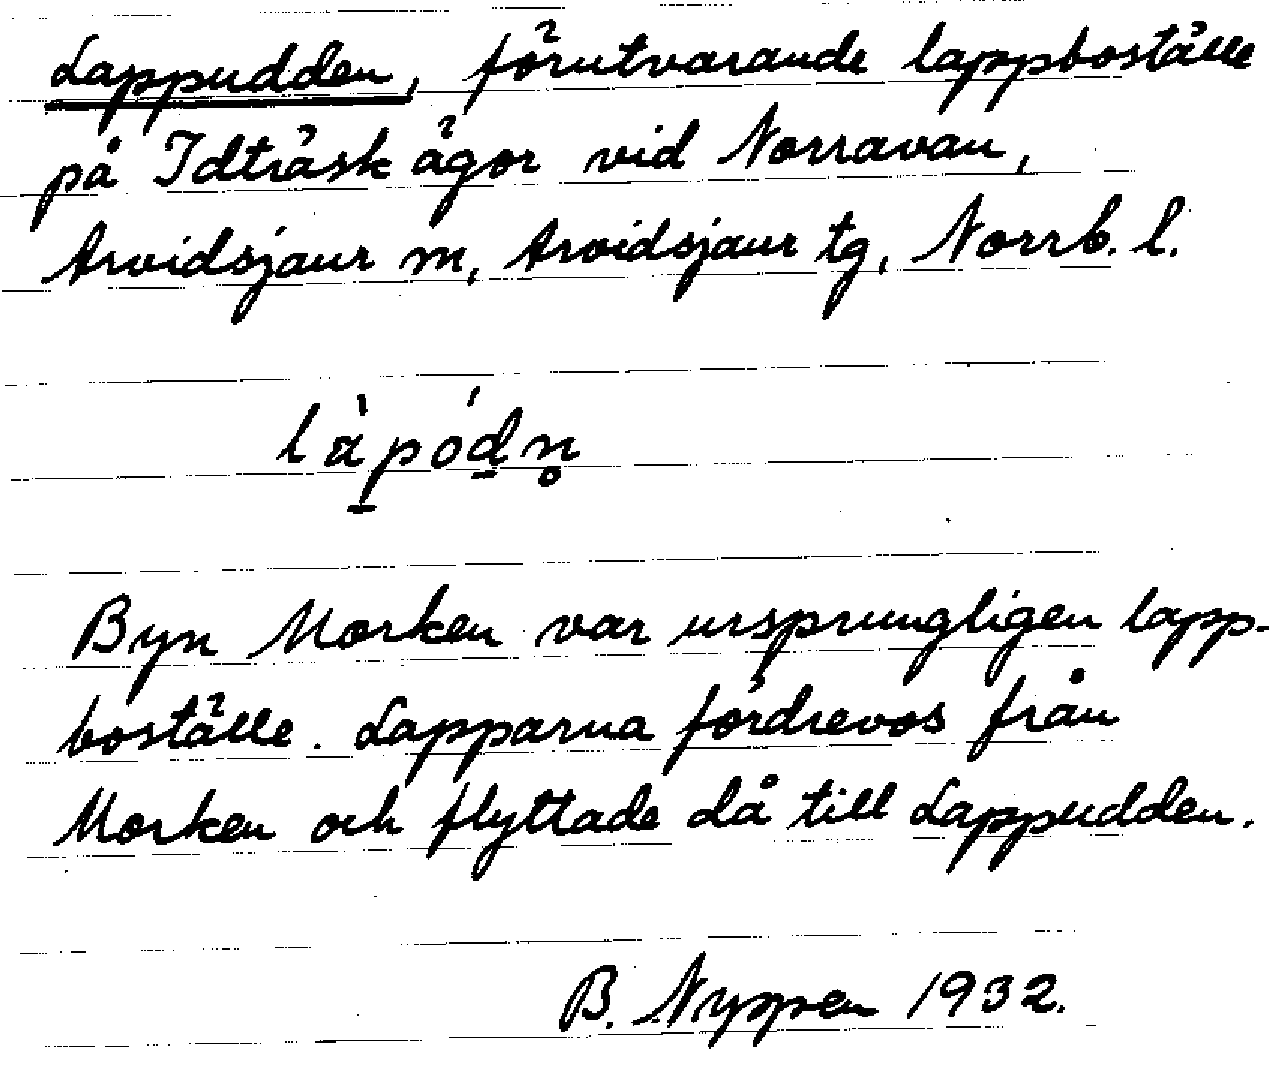 Lappudden, förutvarande lappboställe
på Idträsk ägor vid Norravan,
Arvidsjaur m, Arvidsjaur tg, Norrb. l.
Byn Morken var ursprungligen lapp-
boställe. Lapparna fördrevos från
Morken och flyttade då till Lappudden.
B. Nyppen 1932.